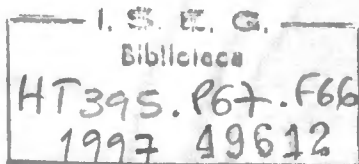 I. S. E. G.
Biblioteca
HT395.P67.F66
1997 49612